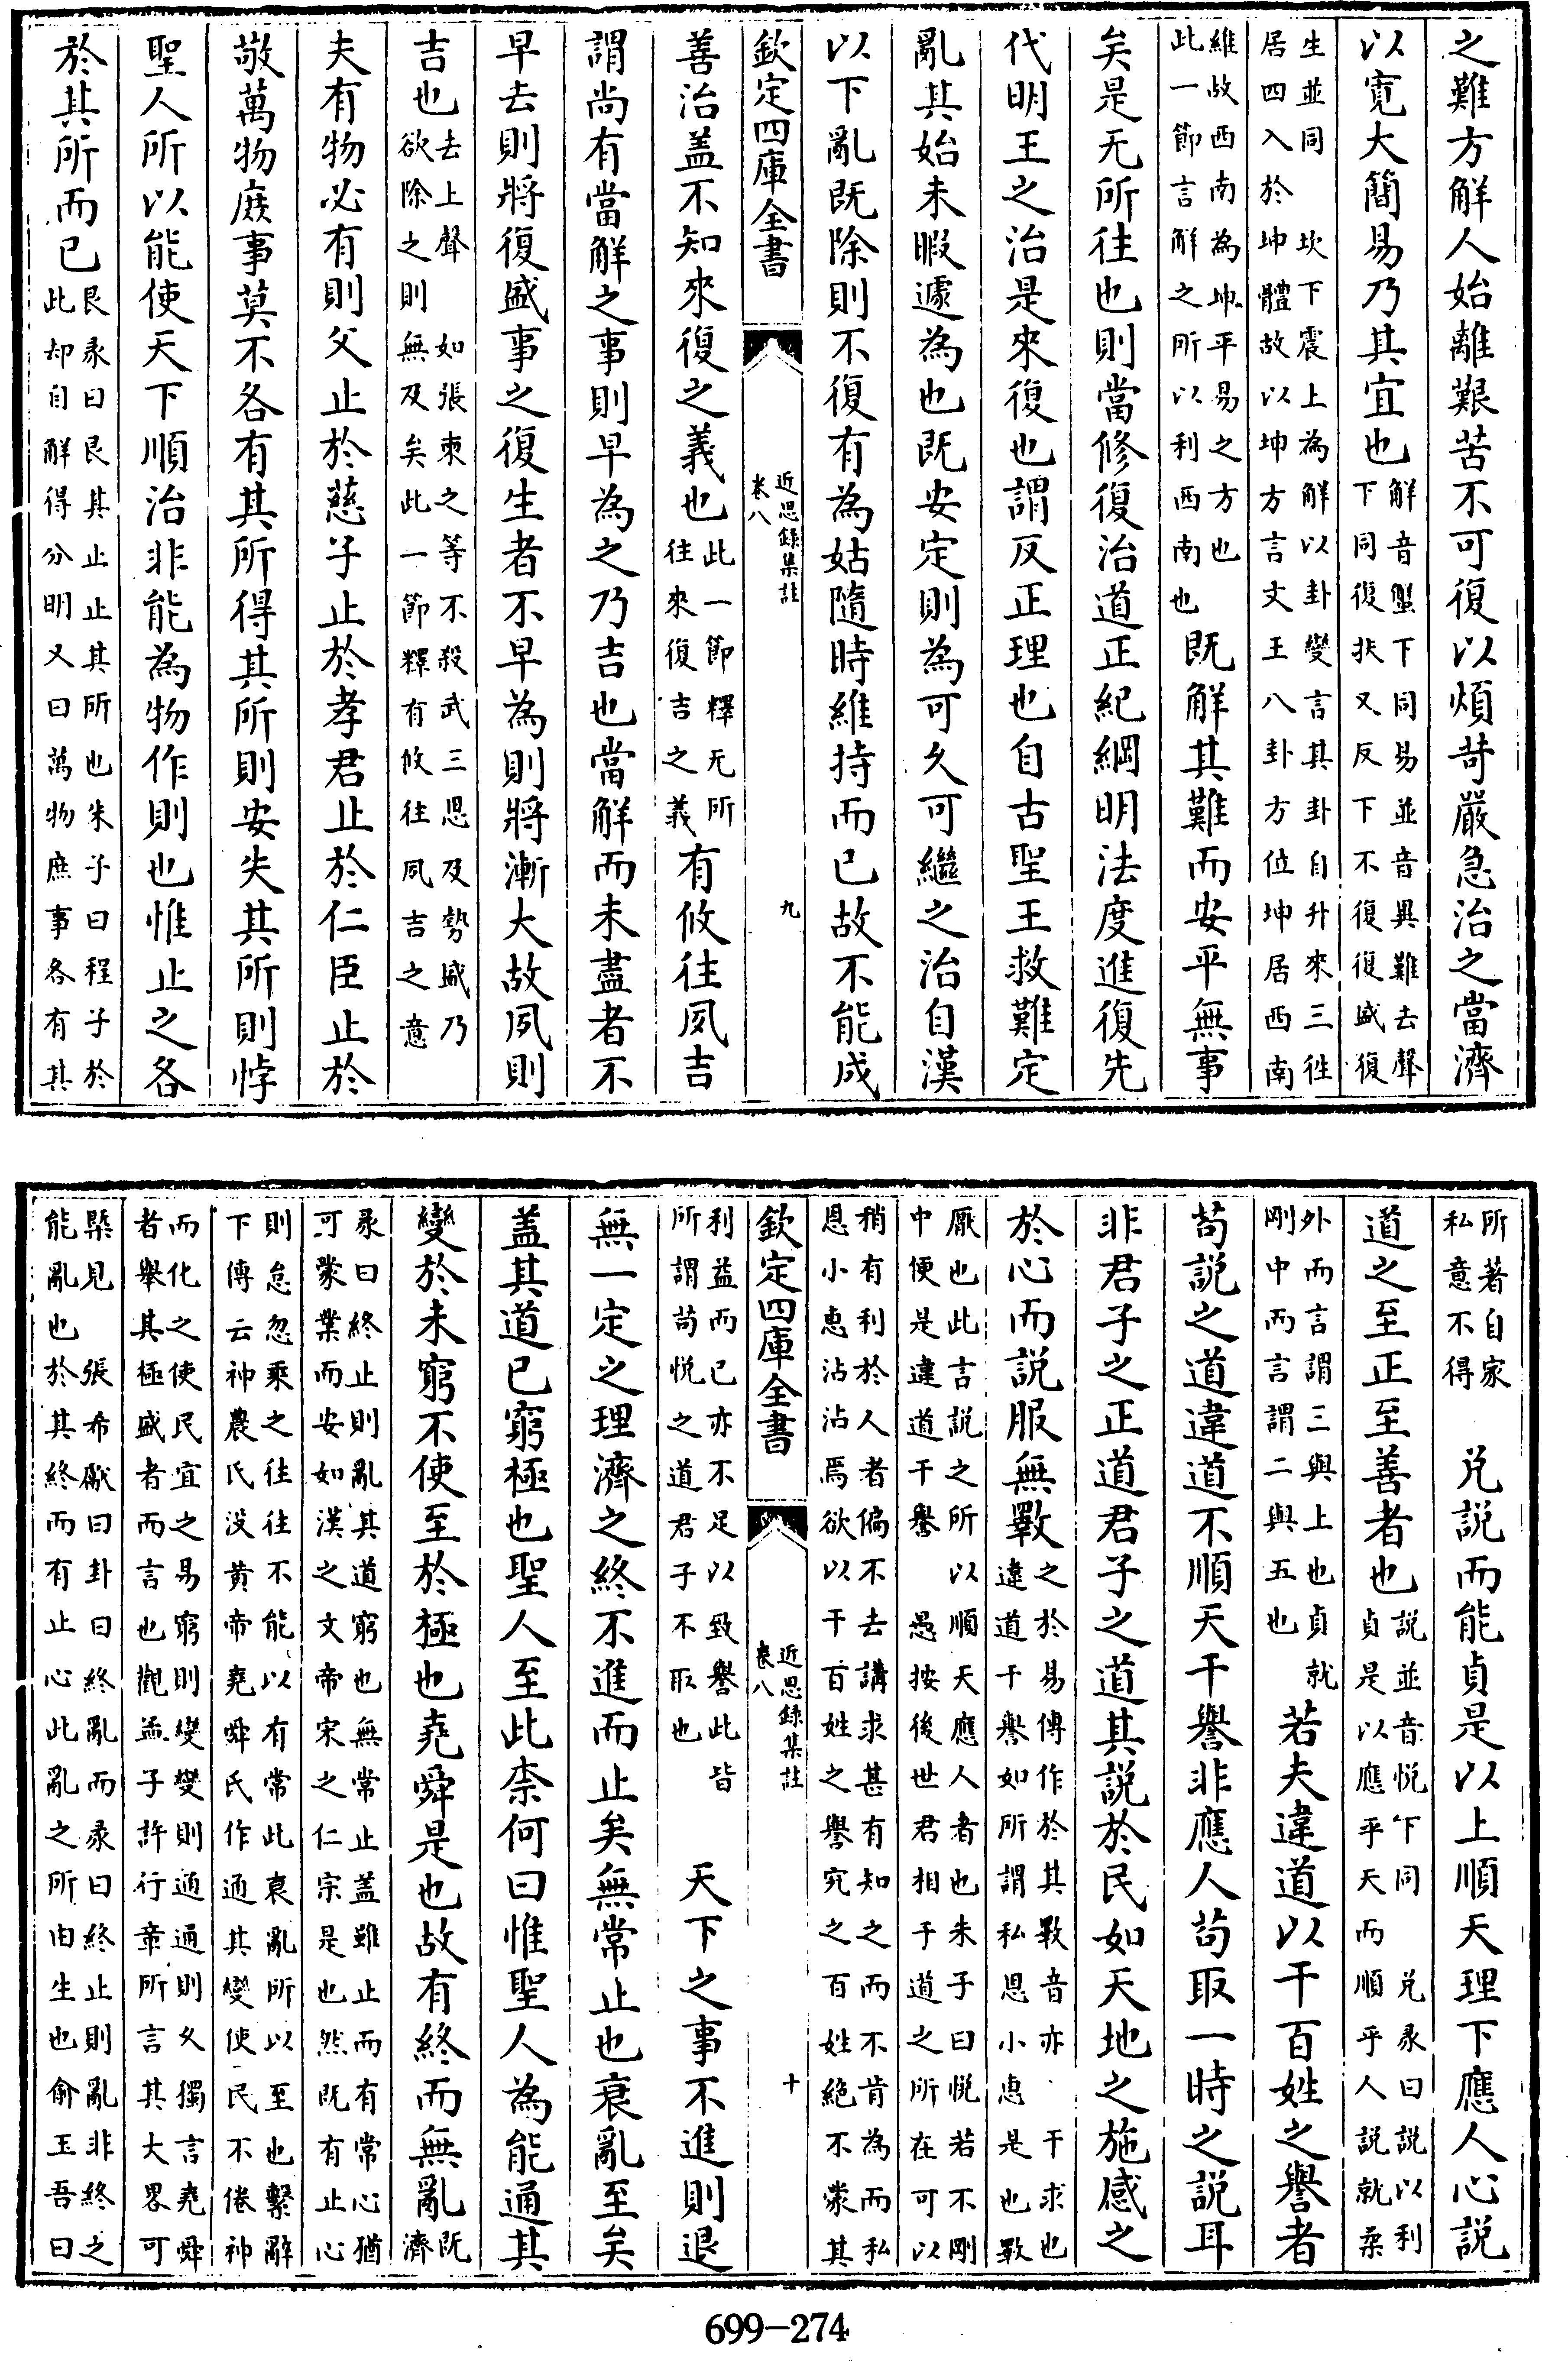 之難方解人始離艱苦不可復以煩苛嚴急治之當濟
以寛大簡易乃其宜也解音蟹下同易並音異難去聲下同復扶又反下不復復盛復
生並同 坎下震上為解以卦變言其卦自升來三徃居四入於坤體故以坤方言文王八卦方位坤居西南
維故西南為坤平易之方也此一節言解之所以利西南也既解其難而安平無事
矣是无所往也則當修復治道正紀綱明法度進復先
代明王之治是來復也謂反正理也自古聖王救難定
亂其始未暇遽為也既安定則為可久可繼之治自漢
以下亂既除則不復有為姑隨時維持而已故不能成
欽定四庫全書 近思錄集註 卷八 九
善治盖不知來復之義也此一節釋无所往來復吉之義有攸往夙吉
謂尚有當解之事則早為之乃吉也當解而未盡者不
早去則將復盛事之復生者不早為則將漸大故夙則
吉也去上聲 如張柬之等不殺武三思及勢盛乃欲除之則無及矣此一節釋有攸往夙吉之意
夫有物必有則父止於慈子止於孝君止於仁臣止於
敬萬物庶事莫不各有其所得其所則安失其所則悖
聖人所以能使天下順治非能為物作則也惟止之各
於其所而已艮彖曰艮其止止其所也朱子曰程子於此却自解得分明又曰萬物庶事各有其
所著自家私意不得 兌說而能貞是以上順天理下應人心說
道之至正至善者也說並音悅下同 兌彖曰說以利貞是以應乎天而順乎人說就柔
外而言謂三與上也貞就剛中而言謂二與五也若夫違道以干百姓之譽者
苟說之道違道不順天干譽非應人苟取一時之說耳
非君子之正道君子之道其說於民如天地之施感之
於心而說服無斁之於易傳作於其斁音亦 干求也違道干譽如所謂私恩小惠是也斁
厭也此言說之所以順天應人者也朱子曰悅若不剛中便是違道干譽 愚按後世君相于道之所在可以
稍有利於人者偏不去講求甚有知之而不肯為而私恩小惠沾沾焉欲以干百姓之譽究之百姓絕不蒙其
利益而已亦不足以致譽此皆所謂苟悅之道君子不取也 天下之事不進則退
欽定四庫全書 近思錄集註 卷八 十
無一定之理濟之終不進而止矣無常止也衰亂至矣
盖其道已窮極也聖人至此柰何曰惟聖人為能通其
變於未窮不使至於極也堯舜是也故有終而無亂既濟
彖曰終止則亂其道窮也無常止盖雖止而有常心猶可蒙業而安如漢之文帝宋之仁宗是也然既有止心
則怠忽乘之往往不能以有常此衰亂所以至也繫辭下傳云神農氏沒黄帝堯舜氏作通其變使民不倦神
而化之使民宜之易窮則變變則通通則久獨言堯舜者舉其極盛者而言也觀孟子許行章所言其大畧可
槩見 張希獻曰卦曰終亂而彖曰終止則亂非終之能亂也於其終而有止心此亂之所由生也俞玉吾曰
699-274